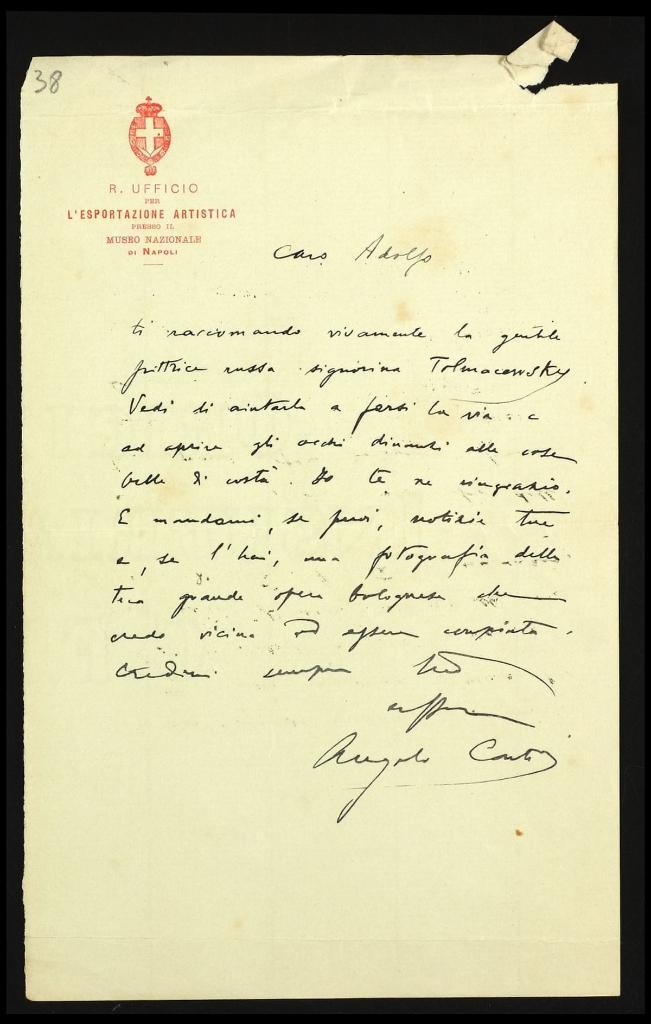 38
R. UFFICIO
PER
L'ESPORTAZIONE ARTISTICA
PRESSO IL
MUSEO NAZIONALE
DI NAPOLI
Caro Adolfo
ti raccomando vivamente la gentile
pittrice russa signorina Tolmacewsky.
Vedi di aiutarla a farsi la via e
ad aprire gli occhi dinanzi alle cose
belle di costà. Io te ne ringrazio.
E mandami, se puoi, notizie tue
e, se l'hai, una fotografia della
tua grande opera bolognese che
credo vicina ad essere compiuta.
Credimi sempre tuo
aff
Angelo Conti